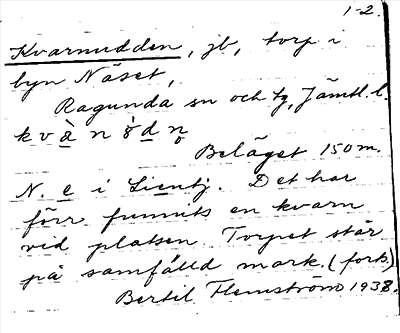 1-2.
Kvarnudden, jb, torp i
byn Näset,
Ragunda sn och tg, Jämtl. l.
Beläget 150 m.
N. e i Det har
förr funnits en kvarn
vid platsen. Torpet står
på samfälld mark. (forts.)
Bertil Flemström 1938.